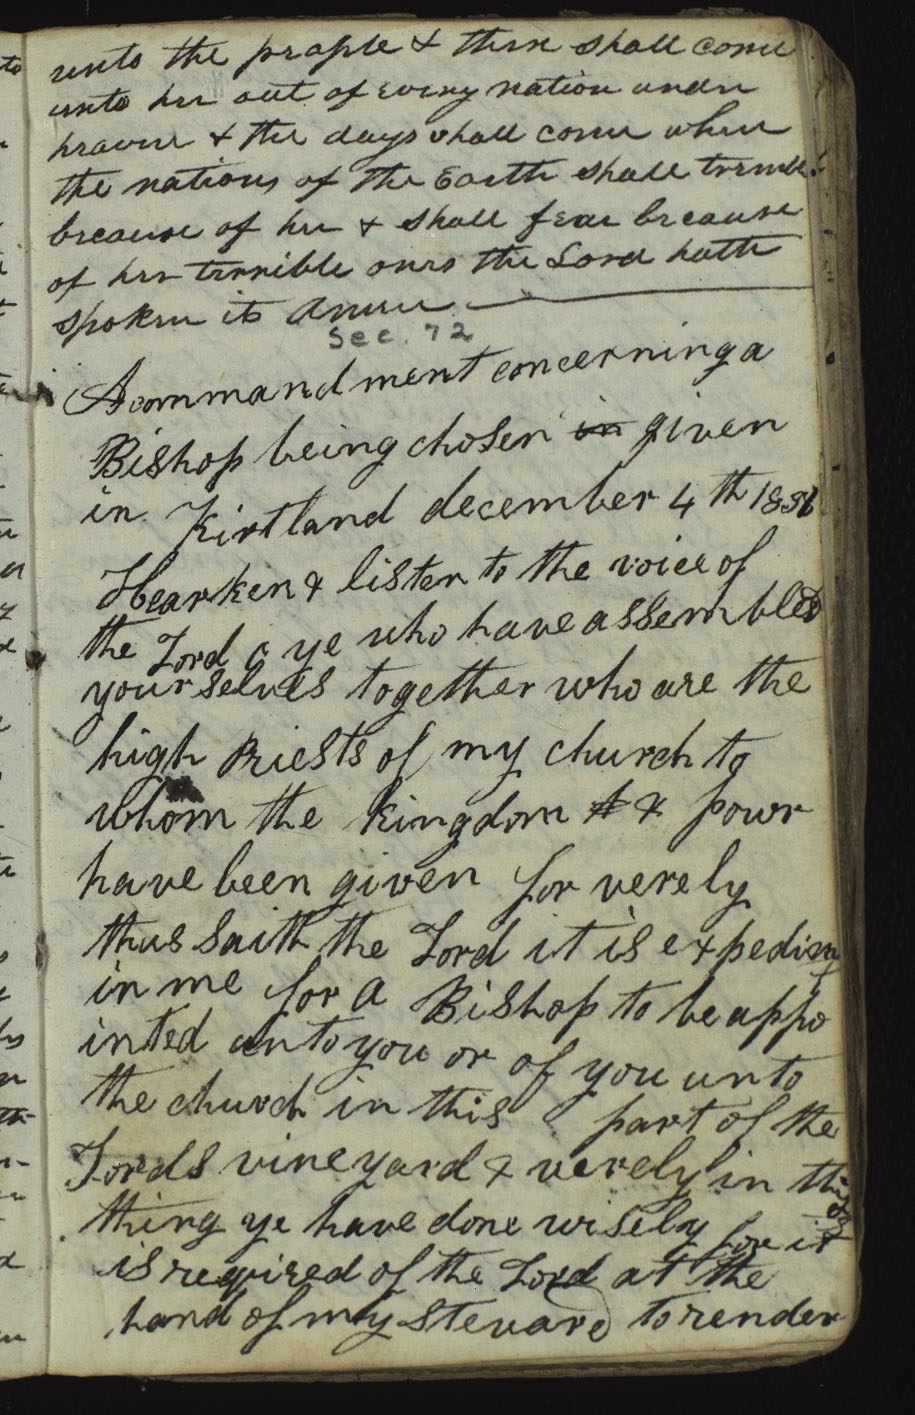 unto the people & there shall come
unto her out of every nation under
heaven & the days shall come when
the nations of the Earth shall tremble
because of her & shall fear because
of her terrible ones the Lord hath
spoken it Amen
Sec. 72
A commandment concerning a
Bishop being chosen in given
in Kirtland december 4th 1831
Hearken & listen to the voice of
the Lord o ye who have assembled
yourselves together who are the
high Priests of my church to
whom the kingdom & powr
have been given for verely
thus saith the Lord it is expedient
in me for a Bishop to be appo
inted unto you or of you unto
the church in this part of the
Lords vineyard & verely in this
thing ye have done wisely for it
is required of the Lord at the
hand of my steward to render